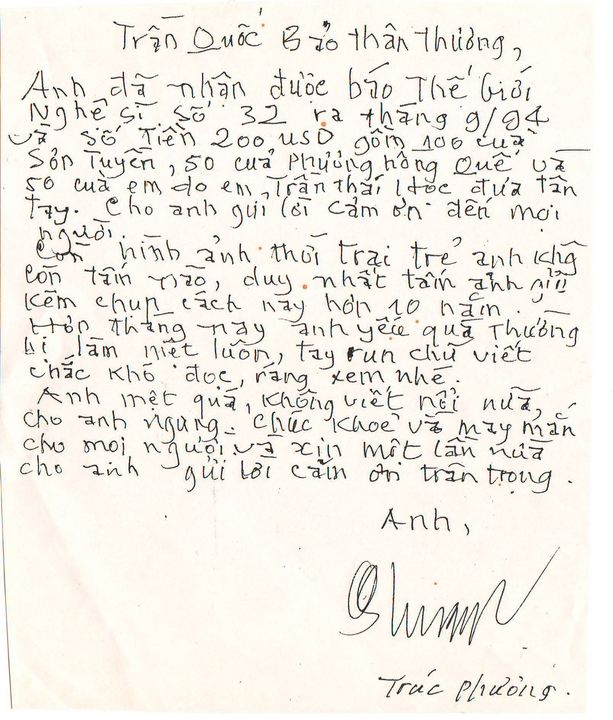 Trần Quốc Bảo thân thương,
Anh đã nhận được báo Thế Giới
Nghệ sĩ số 32 ra tháng 9/94
và số tiền 200 USD gồm 100 của
Sơn Tuyền, 50 của Phượng hồng Quế và
50 của em do em Trần thái Hòc đưa tận
tay. Cho anh gửi lời cảm ơn đến mọi
người.
Còn hình ảnh thời trai trẻ anh khg
còn tấm nào, duy nhất tấm ảnh gửi
kèm chụp cách nay hơn 10 năm.
Hơn tháng nay anh yếu quá thường
bị lâm niết luôn, tay run chữ viết
chắc khó đọc, ráng xem nhé.
Anh mệt quá, không viết nổi nữa,
cho anh ngưng. Chúc khoẻ và may mắn
cho mọi người và xin một lần nữa
cho anh gửi lời cảm ơn trân trọng.
Anh,
Trúc Phương.